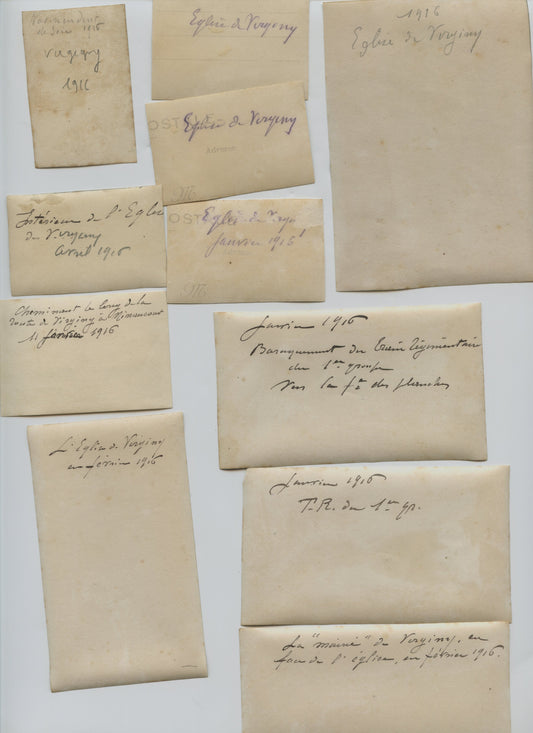 de 1916
Virginy
1916
Eglise de Virginy
OSTALE
Eglise de Virginy
Adresse
M
OST
Eglise de Virgi
Janvier 1916
M
1916
Eglise de Virginy
Intérieur de l'Eglise
de Virginy
Avril 1916
Cheminant le long de la
route de Virginy à Minaucourt
11 Janvier 1916
Janvier 1916
Baraquement du train régimentaire
du 1er groupe
vers la fme des planches
L'Eglise de Virginy
en février 1916
Janvier 1916
T.R. du 1er gp.
La "mairie" de Virginy, en
face de l'église, en février 1916.